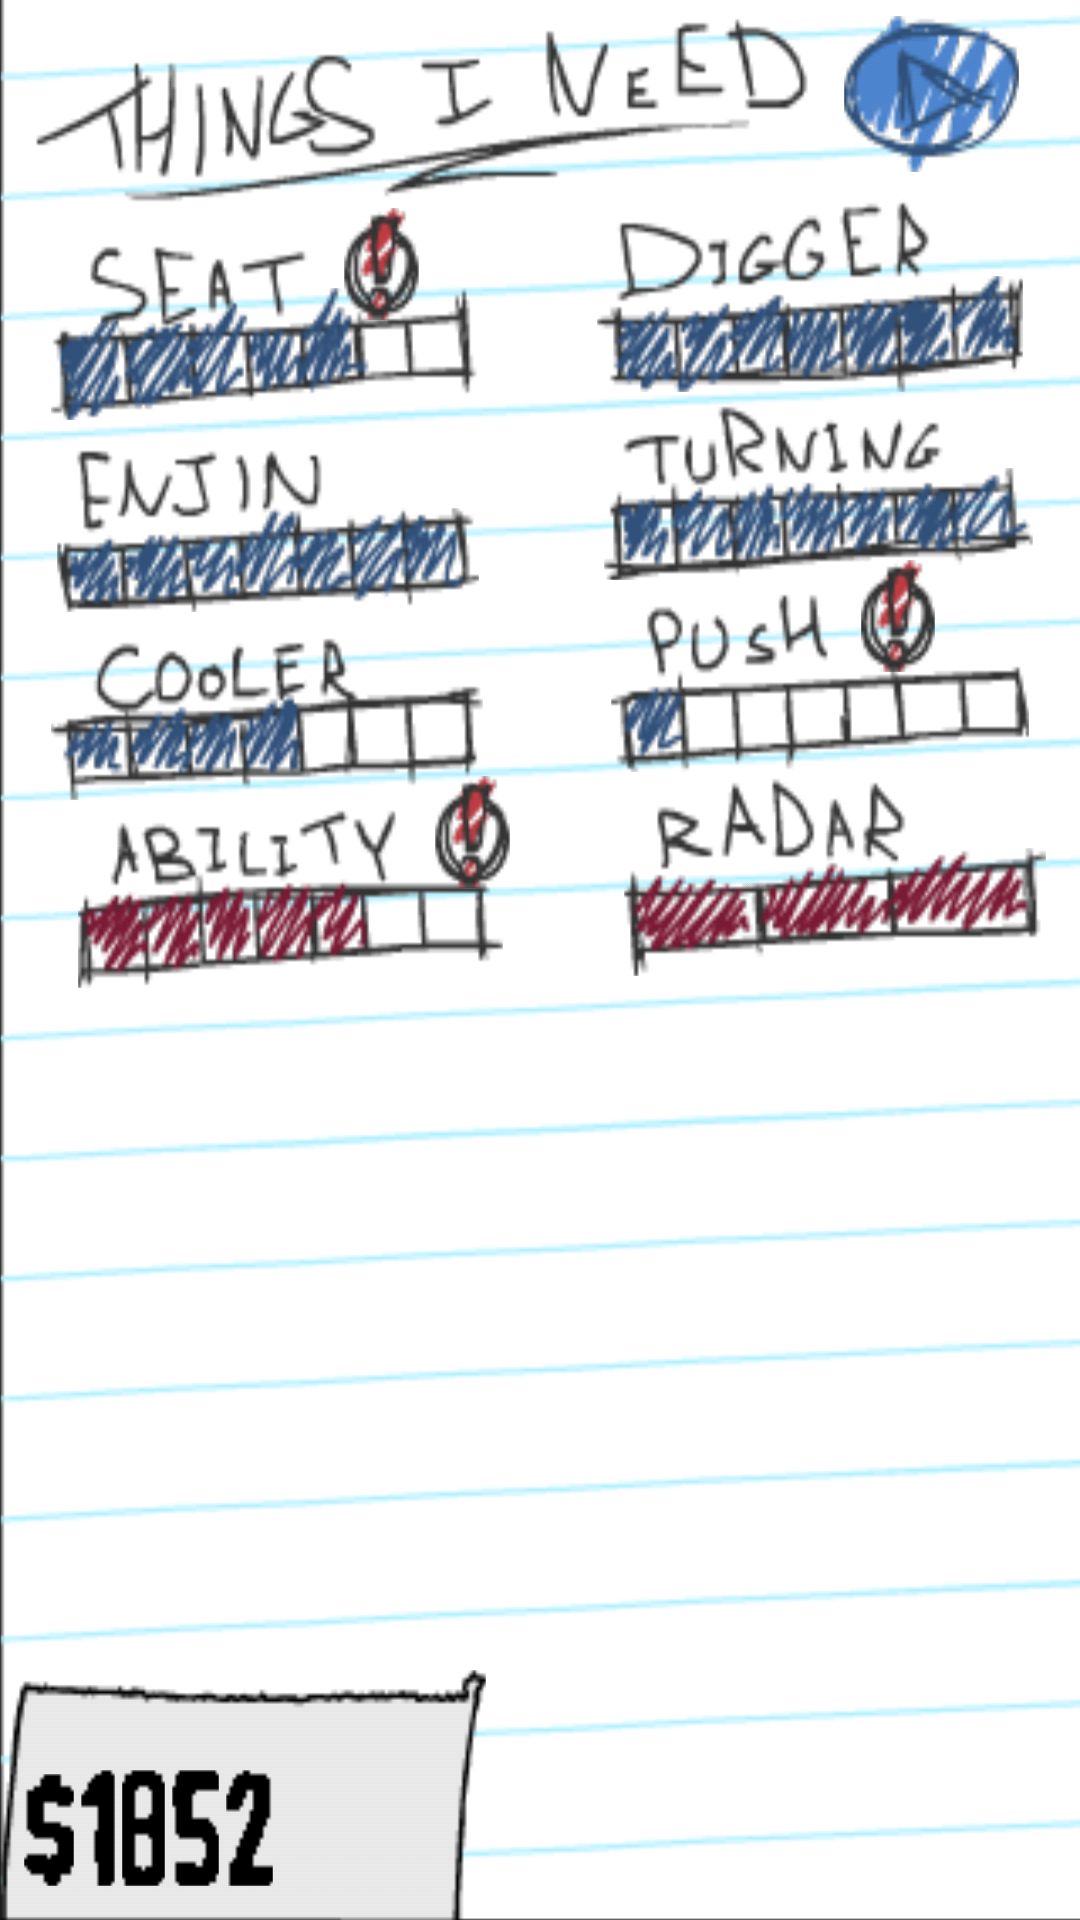 THINGS I NEED
SEAT
DIGGER
ENJIN
TURNING
COOLER
PUSH
ABILITY
RADAR
$1852